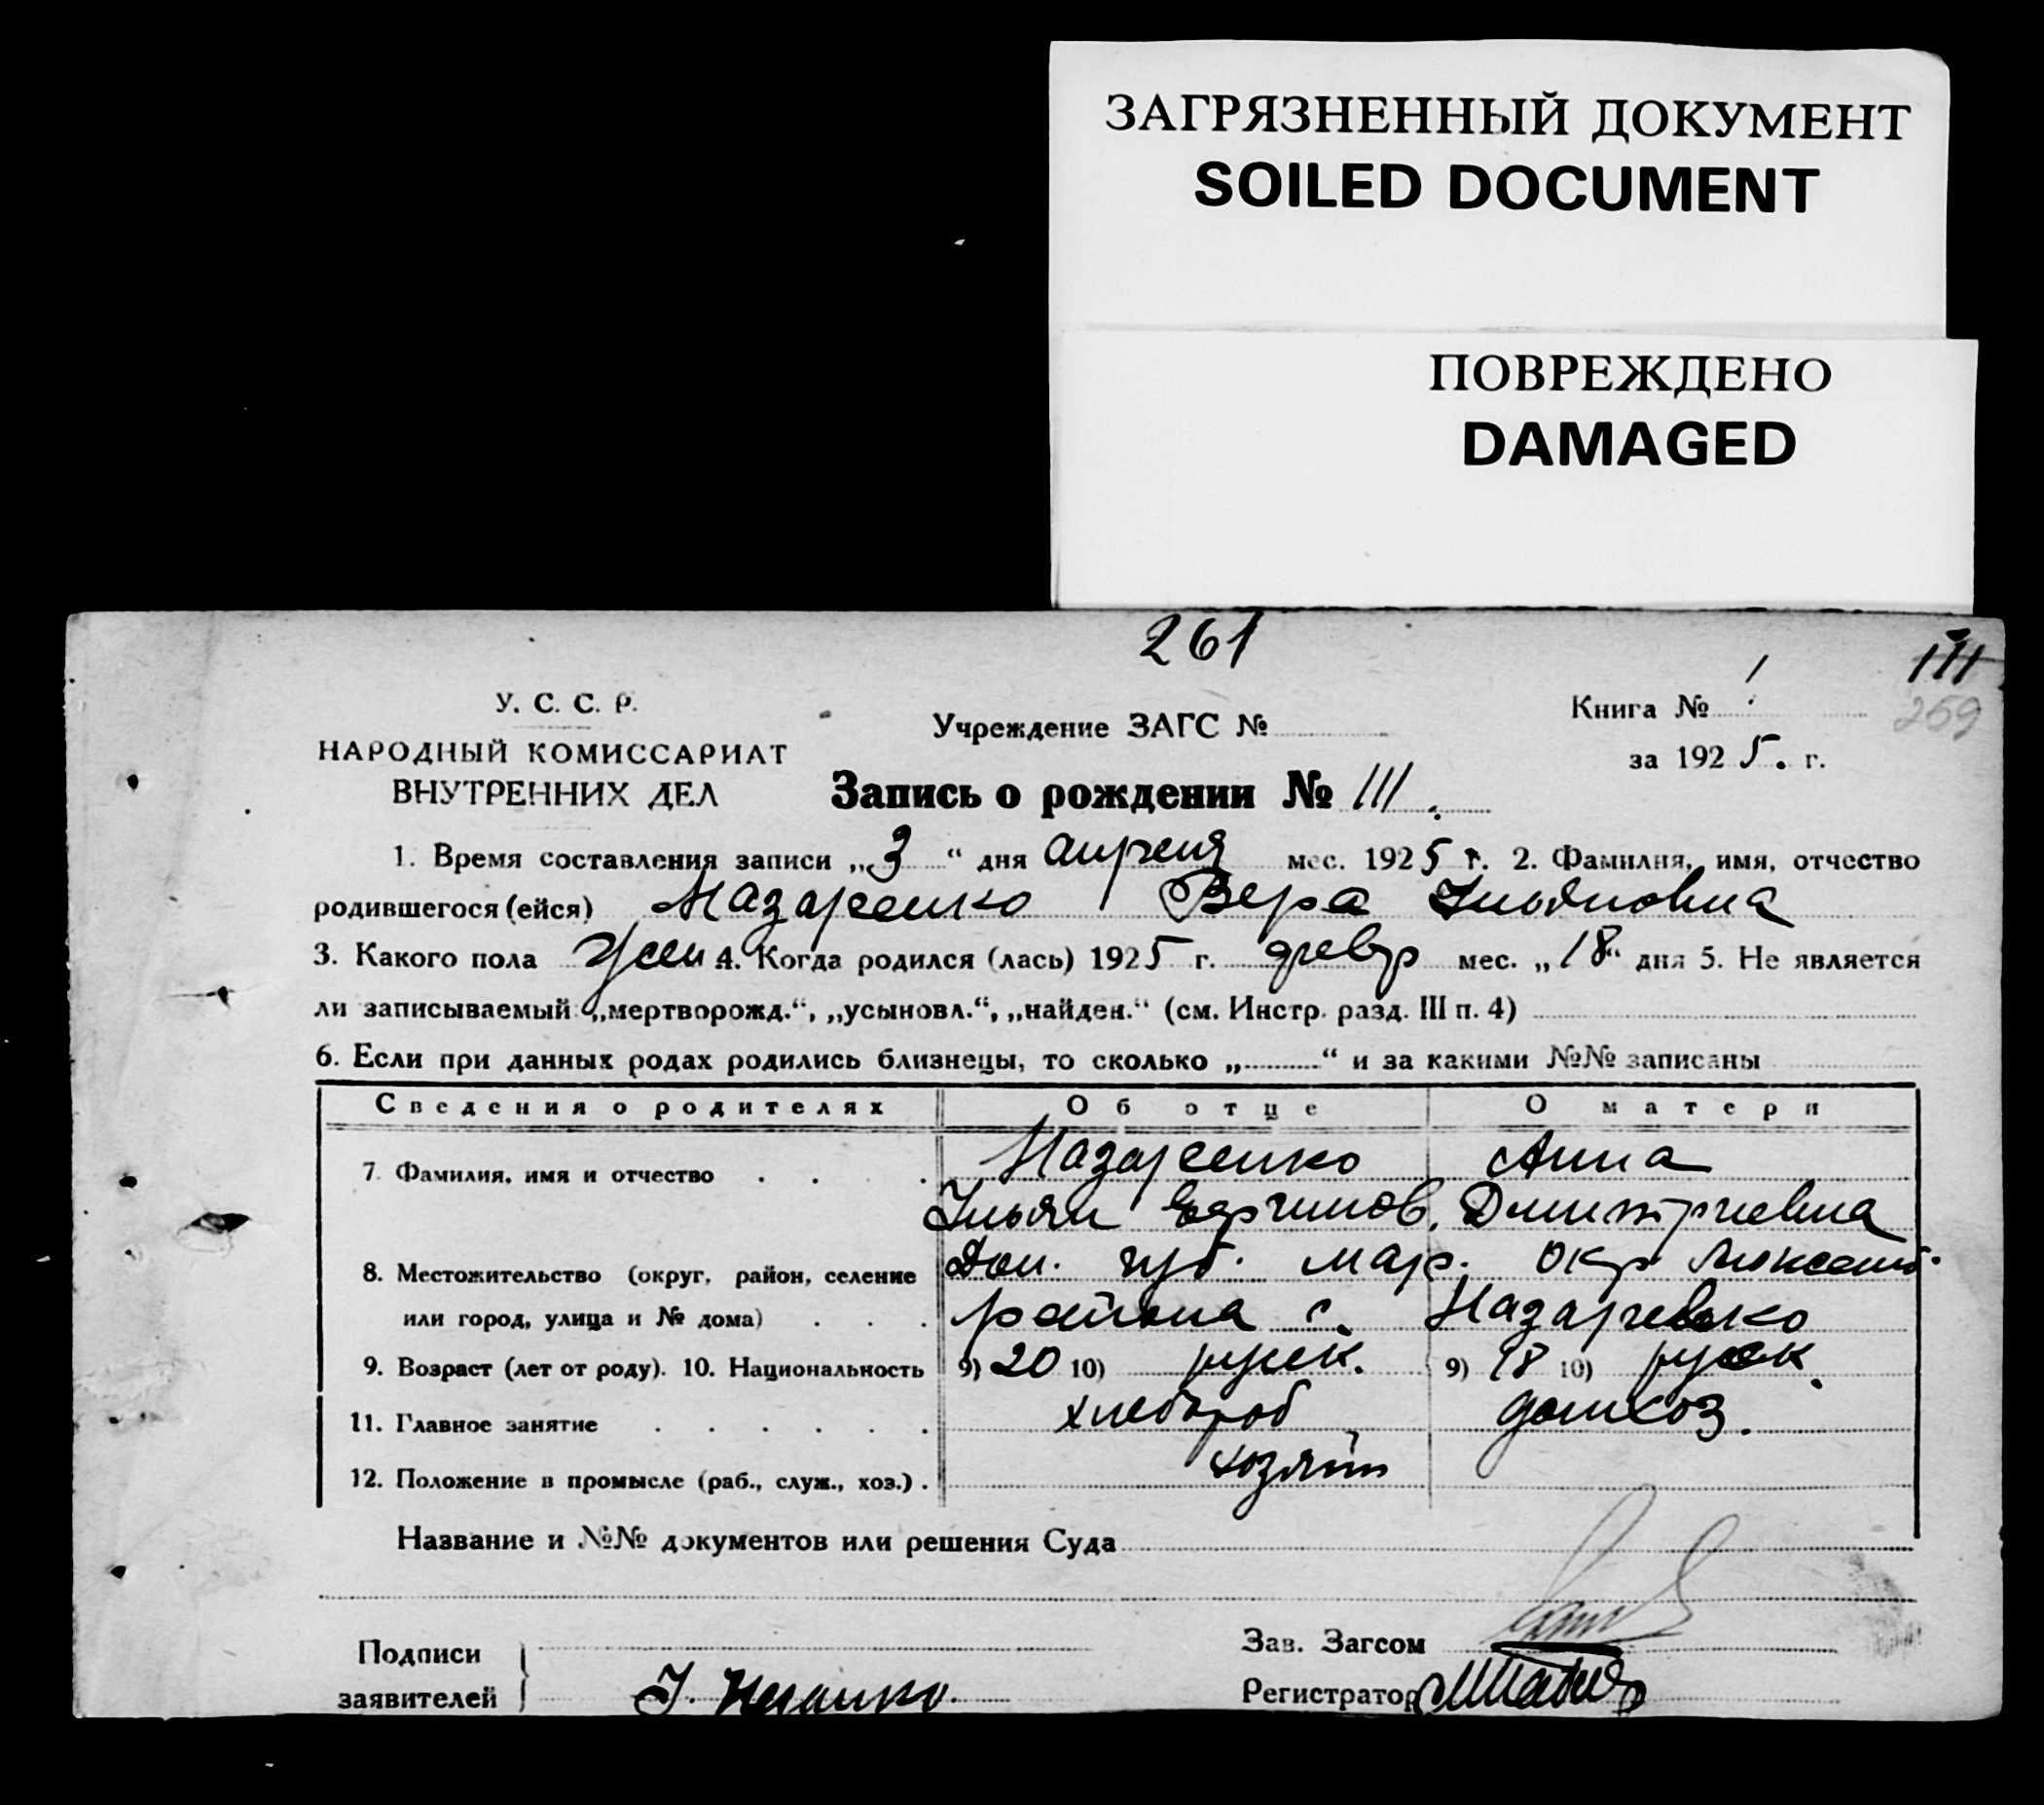 ЗАГРЯЗНЕННЫЙ ДОКУМЕНТ
SOILED DOCUMENT
ПОВРЕЖДЕНО
DAMAGED
261
111
259
У. С. С. Р.
НАРОДНЫЙ КОМИССАРИАТ
ВНУТРЕННИХ ДЕЛ
Учреждение ЗАГС №
Книга № 1
за 1925. г.
Запись о рождении № 111.
1. Время составления записи „3“ дня апреля мес. 1925 г. 2. Фамилия, имя, отчество
родившегося (ейся) Назаренко Вера Ильяновна
3. Какого пола жен 4. Когда родился (лась) 1925 г. февр мес. „18“ дня 5. Не является
ли записываемый „мертворожд.“, „усыновл.“, „найден.“ (см. Инстр. разд. III п. 4)
6. Если при данных родах родились близнецы, то сколько „ “ и за какими №№ записаны
Сведения о родителях Об отце О матери
7. Фамилия, имя и отчество Назаренко Анна
Ильян Ефимов. Дмитриевна
8. Местожительство (округ, район, селение Дон. губ. мар. окр
или город, улица и № дома) района с. Назаревько
9. Возраст (лет от роду). 10. Национальность 9) 20 10) русск. 9) 18 10) русск.
11. Главное занятие хлебороб домхоз.
12. Положение в промысле (раб., служ., хоз.) хозяин
Название и №№ документов или решения Суда
Подписи
заявителей
Зав. Загсом
Регистратор